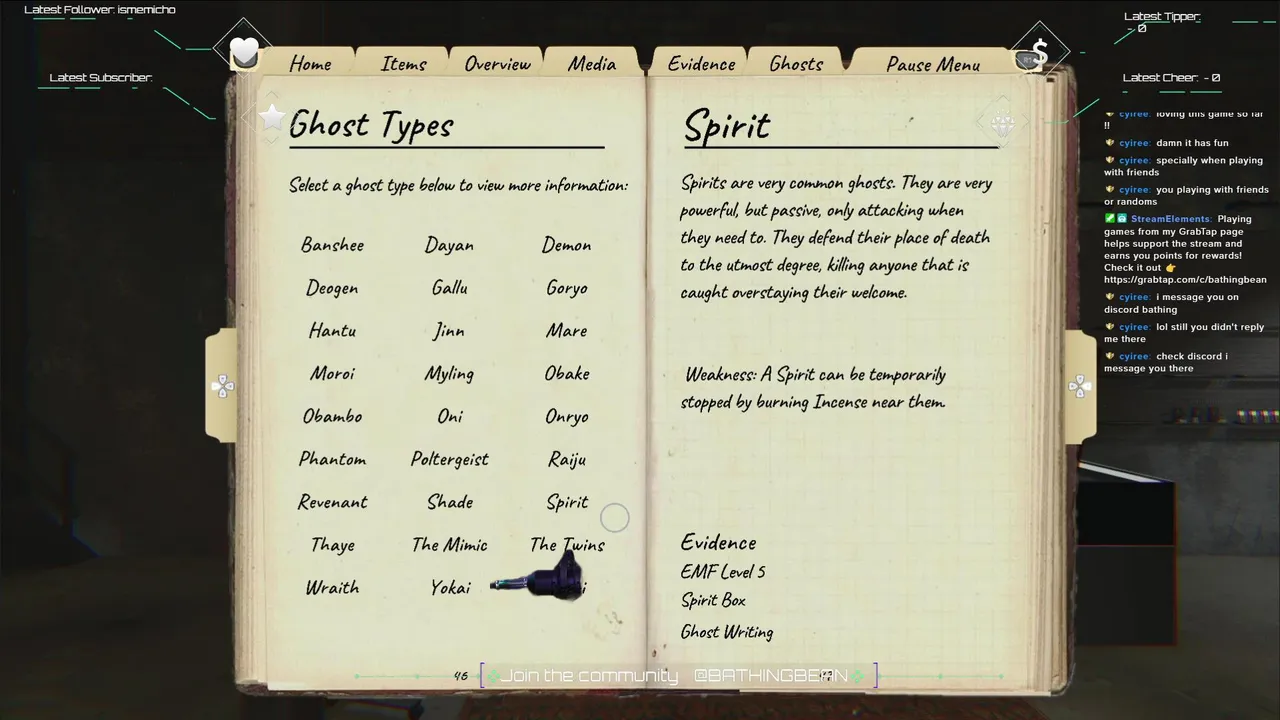 Latest Follower: ismemicho
Latest Subscriber:
Latest Tipper:
- 0
Latest Cheer: - 0
Home Items Overview Media Evidence Ghosts Pause Menu
Ghost Types
Select a ghost type below to view more information:
Banshee Dayan Demon
Deogen Gallu Goryo
Hantu Jinn Mare
Moroi Myling Obake
Obambo Oni Onryo
Phantom Poltergeist Raiju
Revenant Shade Spirit
Thaye The Mimic The Twins
Wraith Yokai
46
Spirit
Spirits are very common ghosts. They are very
powerful, but passive, only attacking when
they need to. They defend their place of death
to the utmost degree, killing anyone that is
caught overstaying their welcome.
Weakness: A Spirit can be temporarily
stopped by burning Incense near them.
Evidence
EMF Level 5
Spirit Box
Ghost Writing
Join the community @BATHINGBEAN
cyiree: loving this game so far
!!
cyiree: damn it has fun
cyiree: specially when playing
with friends
cyiree: you playing with friends
or randoms
StreamElements: Playing
games from my GrabTap page
helps support the stream and
earns you points for rewards!
Check it out 👉
https://grabtap.com/c/bathingbean
cyiree: i message you on
discord bathing
cyiree: lol still you didn't reply
me there
cyiree: check discord i
message you there